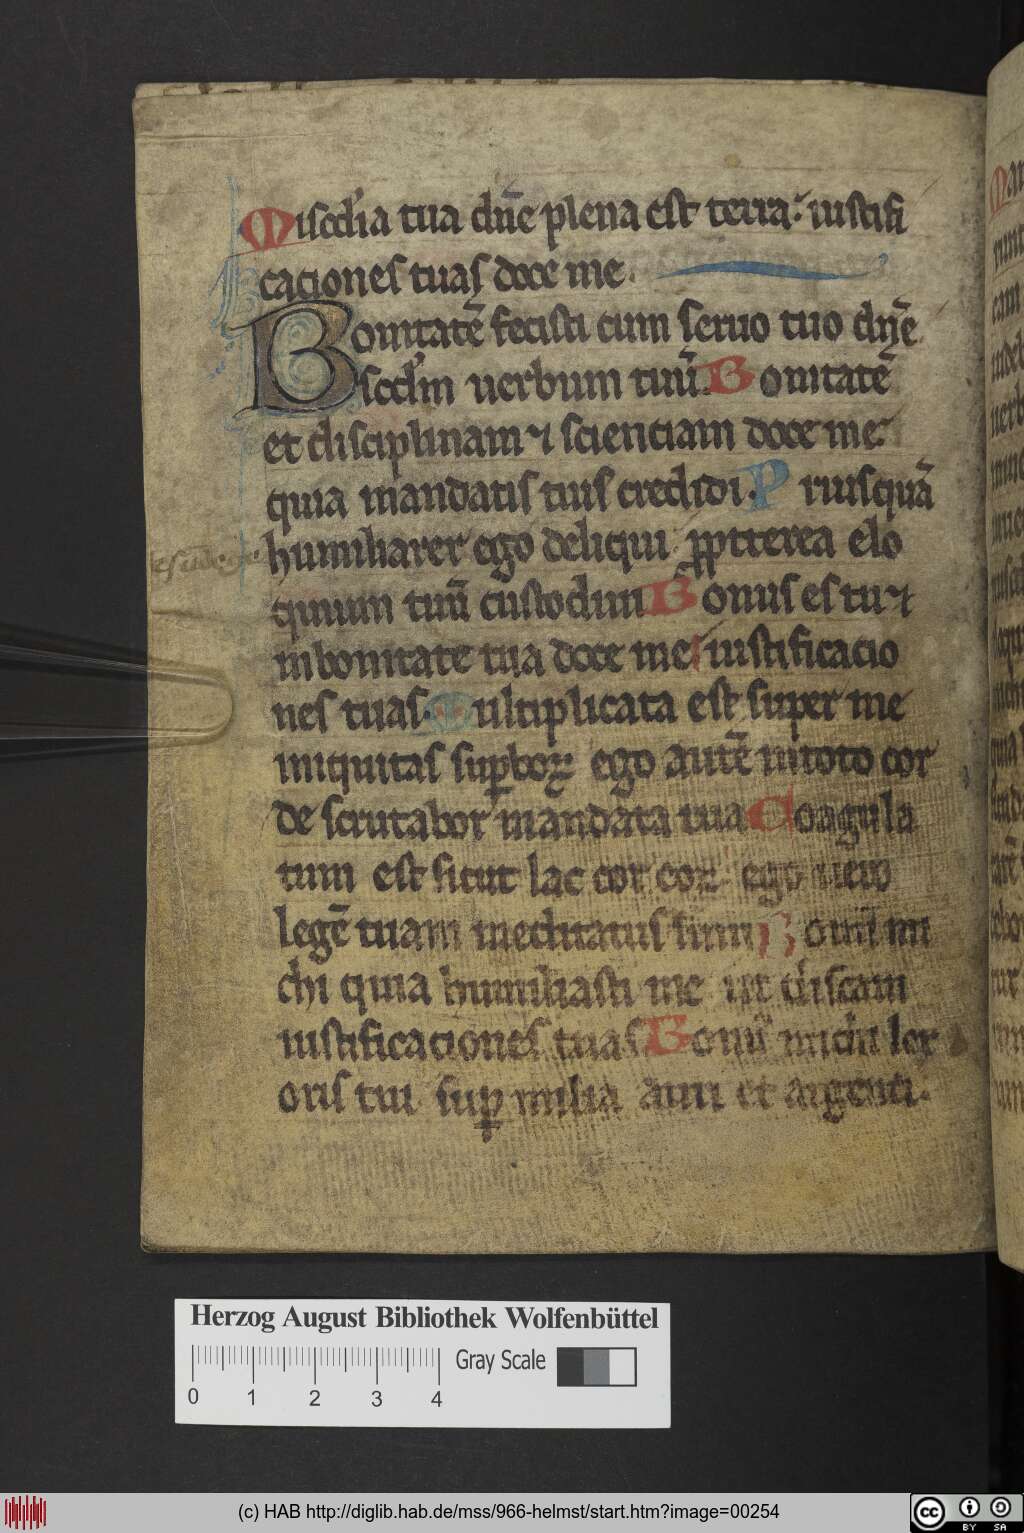 Misc̄dia tua dn̄e plena est terra: iustifi
caciones tuas doce me.
Bonitatē fecisti cum seruo tuo dn̄e
scd̄m uerbum tuū. Bonitatē
et disciplinam ⁊ scienciam doce me:
quia mandatis tuis credidi. Priusquā
humiliarer ego deliqui: ꝓpterea elo
quium tuū custodiui Bonus es tu ⁊
in bonitate tua doce me iustificacio
nes tuas. Multiplicata est super me
iniquitas suꝑboꝝ ego autē in toto cor
de scrutabor mandata tua Coagula
tum est sicut lac cor eoꝝ ego uero
legē tuam meditatus sum Bonū mi
chi quia humiliasti me ut discam
iustificaciones tuas Bonū michi lex
oris tui suꝑ milia auri et argenti.
Herzog August Bibliothek Wolfenbüttel
Gray Scale
0 1 2 3 4
(c) HAB http://diglib.hab.de/mss/966-helmst/start.htm?image=00254
cc BY SA